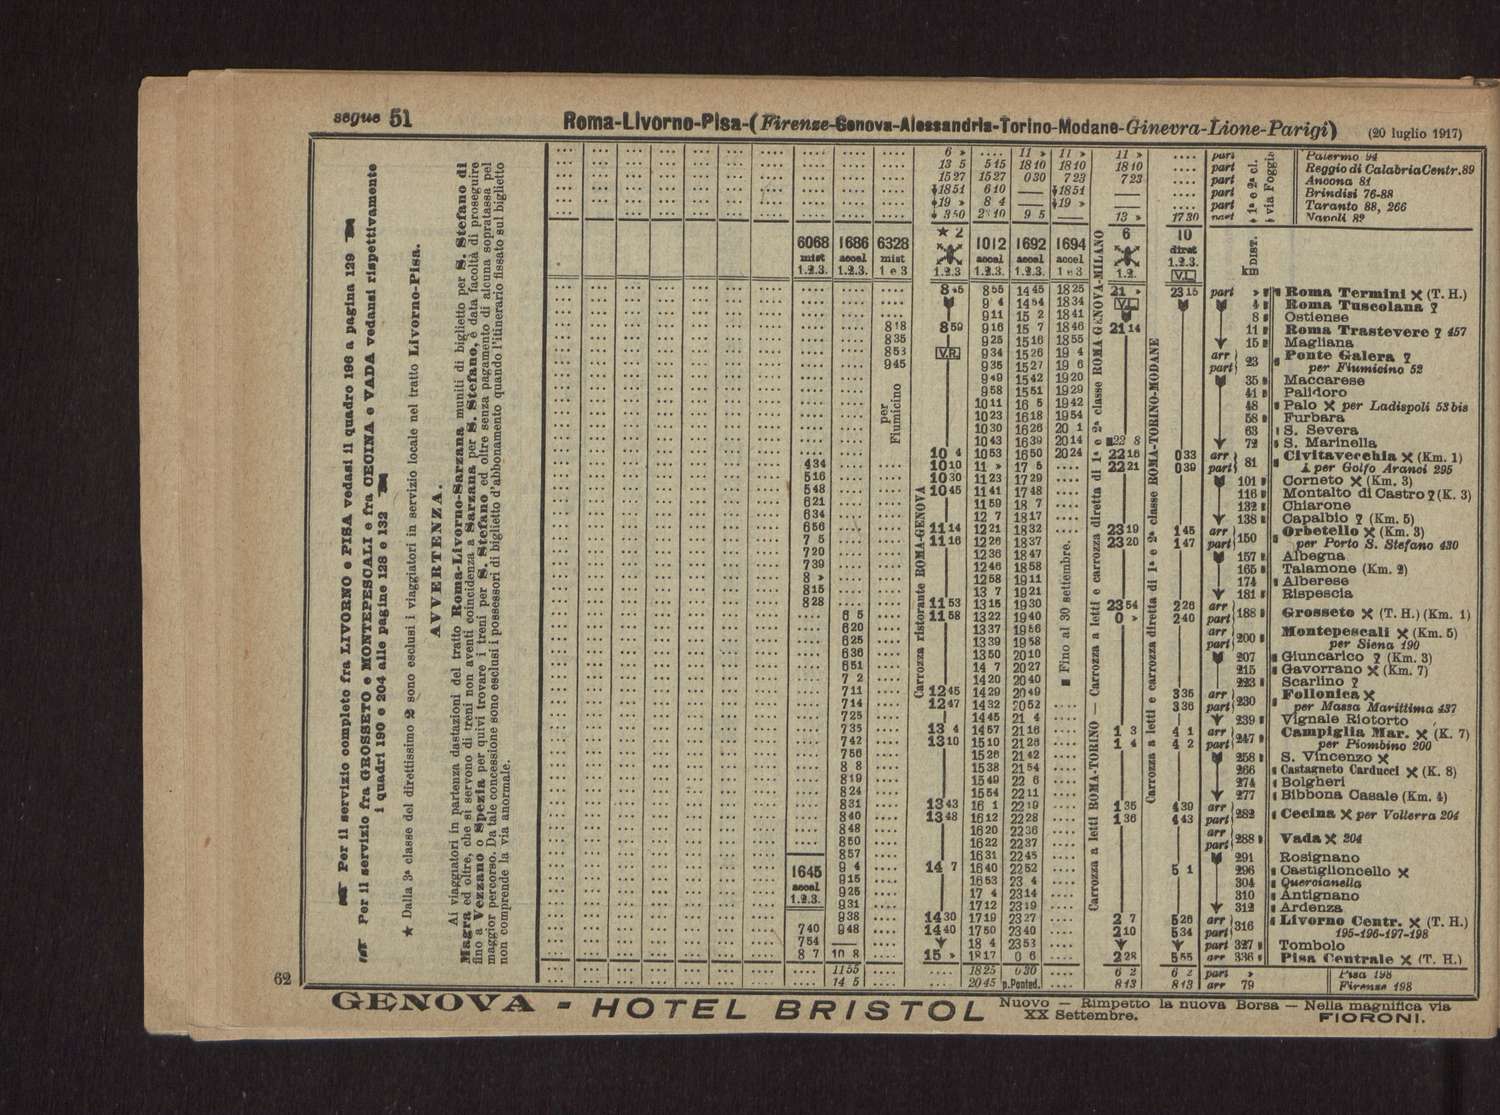 segue 51
Roma-Livorno-Pisa-(Firenze-Genova-Alessandria-Torino-Modane-Ginevra-Lione-Parigi)
(20 luglio 1917)
Per il servizio completo fra LIVORNO e PISA vedasi il quadro 196 a pagina 129
Per il servizio fra GROSSETO e MONTEPESCALI e fra CECINA e VADA vedansi rispettivamente
i quadri 190 e 204 alle pagine 128 e 132
★ Dalla 3ª classe del direttissimo 2 sono esclusi i viaggiatori in servizio locale nel tratto Livorno-Pisa.
AVVERTENZA.
Ai viaggiatori in partenza dastazioni del tratto Roma-Livorno-Sarzana muniti di biglietto per S. Stefano di
Magra ed oltre, che si servono di treni non aventi coincidenza a Sarzana per S. Stefano, è data facoltà di proseguire
fino a Vezzano o Spezia per quivi trovare i treni per S. Stefano ed oltre senza pagamento di alcuna sopratassa pel
maggior percorso. Da tale concessione sono esclusi i possessori di biglietto d'abbonamento quando l'itinerario fissato sul biglietto
non comprende la via anormale.
6 » .... 11 » 11 » 11 » .... part Palermo 94
13 5 5 15 18 10 18 10 18 10 .... part Reggio di Calabria Centr. 89
15 27 15 27 0 30 7 23 7 23 .... part Ancona 81
18 51 6 10 — 18 51 — .... part Brindisi 76-88
19 » 8 4 — 19 » — .... part Taranto 88, 266
3 50 9 5 — 13 » 17 30 part Napoli 89
1ª e 2ª cl.
via Foggia
6068 mist 1.2.3.
1686 accel 1.2.3.
6328 mist 1 e 3
★ 2 1.2.3
1012 accel 1.2.3.
1692 accel 1.2.3.
1694 accel 1 e 3
6 1.2.
10 diret 1.2.3. V.L.
DIST. km
8 45 8 55 14 45 18 25 21 » 23 15 part » Roma Termini (T. H.)
9 4 14 54 18 34 V.L. 4 Roma Tuscolana
9 11 15 2 18 41 8 Ostiense
8 18 8 59 9 16 15 7 18 46 21 14 11 Roma Trastevere 457
8 35 9 25 15 16 18 55 15 Magliana
8 53 V.R. 9 34 15 26 19 4 arr 23 Ponte Galera
9 45 9 35 15 27 19 6 part per Fiumicino 52
9 49 15 42 19 20 35 Maccarese
9 58 15 51 19 29 41 Palidoro
10 11 16 5 19 42 48 Palo per Ladispoli 53 bis
10 23 16 18 19 54 58 Furbara
10 30 16 26 20 1 63 S. Severa
10 43 16 39 20 14 ■22 8 72 S. Marinella
10 4 10 53 16 50 20 24 22 16 0 33 arr 81 Civitavecchia (Km. 1)
4 34 10 10 11 » 17 5 .... 22 21 0 39 part per Golfo Aranci 295
5 16 10 30 11 23 17 29 101 Corneto (Km. 3)
5 48 10 45 11 41 17 48 116 Montalto di Castro (K. 3)
6 21 11 59 18 7 132 Chiarone
6 34 12 7 18 17 138 Capalbio (Km. 5)
6 56 11 14 12 21 18 32 23 19 1 45 arr 150 Orbetello (Km. 3)
7 5 11 16 12 26 18 37 23 20 1 47 part per Porto S. Stefano 430
7 20 12 36 18 47 157 Albegna
7 39 12 46 18 58 165 Talamone (Km. 2)
8 » 12 58 19 11 174 Alberese
8 15 13 7 19 21 181 Rispescia
8 28 11 53 13 15 19 30 23 54 2 26 arr 188 Grosseto (T. H.) (Km. 1)
6 5 11 58 13 22 19 40 0 » 2 40 part
6 20 13 37 19 56 arr 200 Montepescali (Km. 5)
6 25 13 39 19 58 part per Siena 190
6 36 13 50 20 10 207 Giuncarico (Km. 3)
6 51 14 7 20 27 215 Gavorrano (Km. 7)
7 2 14 20 20 40 223 Scarlino
7 11 12 45 14 29 20 49 3 35 arr 230 Follonica
7 14 12 47 14 32 20 52 3 36 part per Massa Marittima 437
7 25 14 45 21 4 239 Vignale Riotorto
7 35 13 4 14 57 21 16 1 3 4 1 arr 247 Campiglia Mar. (K. 7)
7 42 13 10 15 10 21 28 1 4 4 2 part per Piombino 200
7 56 15 26 21 42 258 S. Vincenzo
8 8 15 38 21 54 266 Castagneto Carducci (K. 8)
8 19 15 49 22 6 274 Bolgheri
8 24 15 54 22 11 277 Bibbona Casale (Km. 4)
8 31 13 43 16 1 22 19 1 35 4 39 arr 282 Cecina per Volterra 204
8 40 13 48 16 12 22 28 1 36 4 43 part
8 48 16 20 22 36 arr 288 Vada 204
8 50 16 22 22 37 part
8 57 16 31 22 45 291 Rosignano
9 4 14 7 16 40 22 52 5 1 296 Castiglioncello
9 15 16 53 23 4 304 Quercianella
9 25 17 4 23 14 310 Antignano
9 31 17 12 23 19 312 Ardenza
1645 accel 1.2.3.
9 38 14 30 17 19 23 27 2 7 5 26 arr 316 Livorno Centr. (T. H.)
7 40 9 48 14 40 17 50 23 40 2 10 5 34 part 195-196-197-198
7 54 — 18 4 23 53 part 327 Tombolo
8 7 10 8 15 » 18 17 0 6 2 28 5 55 arr 336 Pisa Centrale (T. H.)
11 55 .... 18 25 0 30 .... 6 2 6 2 part » Pisa 198
14 5 .... 20 45 p.Ponted. .... 8 13 8 13 arr 79 Firenze 198
per Fiumicino
Carrozza ristorante ROMA-GENOVA
■ Fino al 30 settembre.
Carrozza a letti ROMA-TORINO — Carrozza a letti e carrozza diretta di 1ª e 2ª classe ROMA GENOVA-MILANO
Carrozza a letti e carrozza diretta di 1ª e 2ª classe ROMA-TORINO-MODANE
62
GENOVA - HOTEL BRISTOL
Nuovo — Rimpetto la nuova Borsa — Nella magnifica via
XX Settembre. FIORONI.